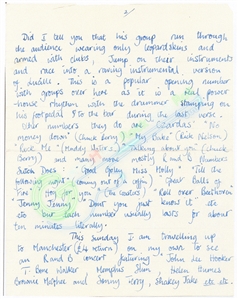 2
Did I tell you that his group run through
the audience wearing only leopardskins and
armed with clubs, Jump on their instruments
and race into a raving instrumental version
of Lucille. This is a popular opening number
with groups over here as it is a real power
house rhythm with the drummer stamping on
his footpedal 8 to the bar during the last verse.
Other numbers they do are Czardas. "No
money down" (Chuck Berry) "My Babe" (Rick Nelson)
"Rock Me" (Muddy Waters) "Talking about you" (Chuck
Berry) and many more mostly R and B numbers
Dutch Does "Good Golly Miss Molly" "Tell the
following night" (coming out of a coffin) "Great Balls of
Fire" "for you" (the Castles) "Roll over Beethoven"
"Jenny Jenny" "Don't you just know it" etc
etc but each number usually lasts for about
ten minutes literally.
This Sunday I am travelling up
to Manchester (£4 return) on my own to see
an R and B concert featuring John Lee Hooker
T. Bone Walker Memphis Slim Helen Humes
Brownie McGhee and Sonny Terry, Shakey Jake etc etc.